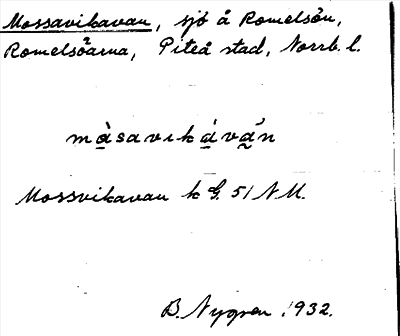 Mossavikavan, sjö å Romelsön,
Romelsöarna, Piteå stad, Norrb. l.
màsavikává̰n
Mossvikavan k G. 51 N M.
B. Nygren 1932.